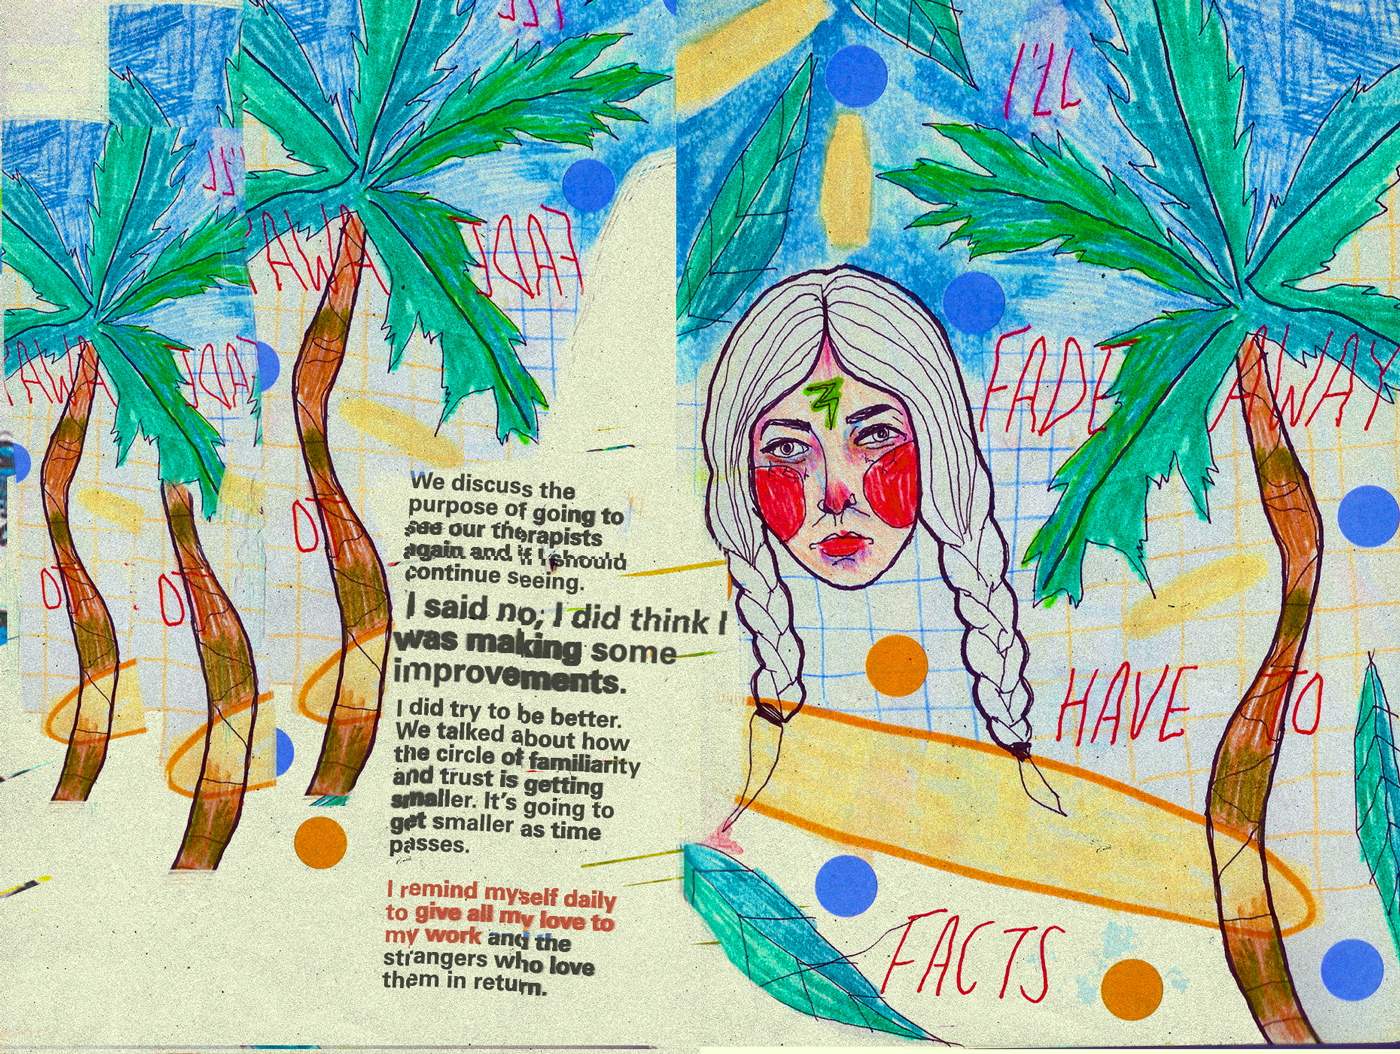 We discuss the
purpose of going to
see our therapists
again and if I should
continue seeing.
I said no; I did think I
was making some
improvements.
I did try to be better.
We talked about how
the circle of familiarity
and trust is getting
smaller. It's going to
get smaller as time
passes.
I remind myself daily
to give all my love to
my work and the
strangers who love
them in return.
I'LL
FADE AWAY
HAVE TO
FACTS